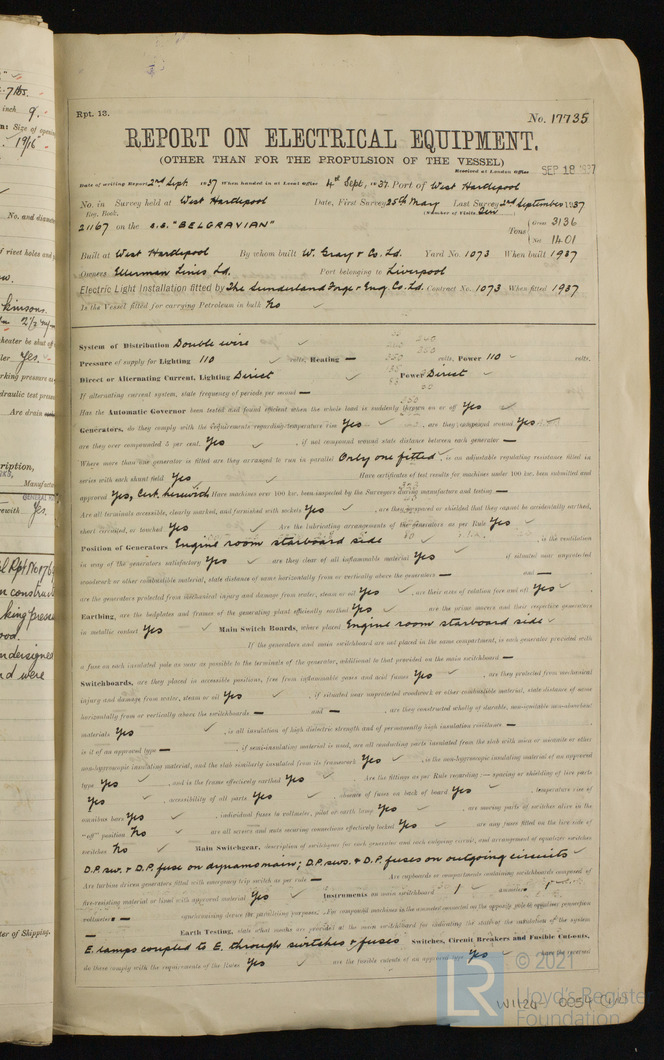 Rpt. 13.
No. 17735
REPORT ON ELECTRICAL EQUIPMENT.
(OTHER THAN FOR THE PROPULSION OF THE VESSEL)
Received at London Office SEP 18 1937
Date of writing Report 2nd Sept. 1937 When handed in at Local Office 4th Sept, 1937 Port of West Hartlepool
No. in Survey held at West Hartlepool Date, First Survey 25th May Last Survey 2nd September 1937
Reg. Book. (Number of Visits Ten)
21167 on the s.s. "BELGRAVIAN" Tons { Gross 3136
Net 1401
Built at West Hartlepool By whom built W. Gray & Co. Ld. Yard No. 1073 When built 1937
Owners Ellerman Lines Ld. Port belonging to Liverpool
Electric Light Installation fitted by The Sunderland Forge & Eng. Co. Ld. Contract No. 1073 When fitted 1937
Is the Vessel fitted for carrying Petroleum in bulk No
System of Distribution Double wire
Pressure of supply for Lighting 110 volts, Heating — volts, Power 110 volts.
Direct or Alternating Current, Lighting Direct Power Direct
If alternating current, state frequency of periods per second —
Has the Automatic Governor been tested and found efficient when the whole load is suddenly thrown on or off Yes
Generators, do they comply with the requirements regarding temperature rise Yes, are they compound wound Yes
are they over compounded 5 per cent. Yes, if not compound wound state distance between each generator —
Where more than one generator is fitted are they arranged to run in parallel Only one fitted, is an adjustable regulating resistance fitted in
series with each shunt field Yes Have certificates of test results for machines under 100 kw. been submitted and
approved Yes, Cert. herewith Have machines over 100 kw. been inspected by the Surveyors during manufacture and testing —
Are all terminals accessible, clearly marked, and furnished with sockets Yes, are they so spaced or shielded that they cannot be accidentally earthed,
short circuited, or touched Yes Are the lubricating arrangements of the generators as per Rule Yes
Position of Generators Engine room starboard side, is the ventilation
in way of the generators satisfactory Yes, are they clear of all inflammable material Yes, if situated near unprotected
woodwork or other combustible material, state distance of same horizontally from or vertically above the generators — and —
are the generators protected from mechanical injury and damage from water, steam or oil Yes, are their axes of rotation fore and aft Yes
Earthing, are the bedplates and frames of the generating plant efficiently earthed Yes are the prime movers and their respective generators
in metallic contact Yes Main Switch Boards, where placed Engine room starboard side
If the generators and main switchboard are not placed in the same compartment, is each generator provided with
a fuse on each insulated pole as near as possible to the terminals of the generator, additional to that provided on the main switchboard —
Switchboards, are they placed in accessible positions, free from inflammable gases and acid fumes Yes, are they protected from mechanical
injury and damage from water, steam or oil Yes, if situated near unprotected woodwork or other combustible material, state distance of same
horizontally from or vertically above the switchboards — and —, are they constructed wholly of durable, non-ignitable non-absorbent
materials Yes, is all insulation of high dielectric strength and of permanently high insulation resistance —
is it of an approved type —, if semi-insulating material is used, are all conducting parts insulated from the slab with mica or micanite or other
non-hygroscopic insulating material, and the slab similarly insulated from its framework Yes, is the non-hygroscopic insulating material of an approved
type Yes, and is the frame effectively earthed Yes Are the fittings as per Rule regarding:— spacing or shielding of live parts
Yes, accessibility of all parts Yes, absence of fuses on back of board Yes, temperature rise of
omnibus bars Yes, individual fuses to voltmeter, pilot or earth lamp Yes, are moving parts of switches alive in the
"off" position No are all screws and nuts securing connections effectively locked Yes are any fuses fitted on the live side of
switches No Main Switchgear, description of switchgear for each generator and each outgoing circuit, and arrangement of equaliser switches
D.P. sw. & D.P. fuse on dynamo main; D.P. sws. & D.P. fuses on outgoing circuits
Are turbine driven generators fitted with emergency trip switch as per rule — Are cupboards or compartments containing switchboards composed of
fire-resisting material or lined with approved material Yes Instruments on main switchboard 1 ammeters 1
voltmeters — synchronising device for paralleling purposes. For compound machines
Earth Testing, state what means are provided at the main switchboard for indicating the state of the insulation of the system
E. lamps coupled to E. through switches & fuses Switches, Circuit Breakers and Fusible Cut-outs,
do these comply with the requirements of the Rules Yes are the fusible cutouts of an approved type Yes have the reversed
© 2021
LR Lloyd's Register
Foundation
W1120 - 0054